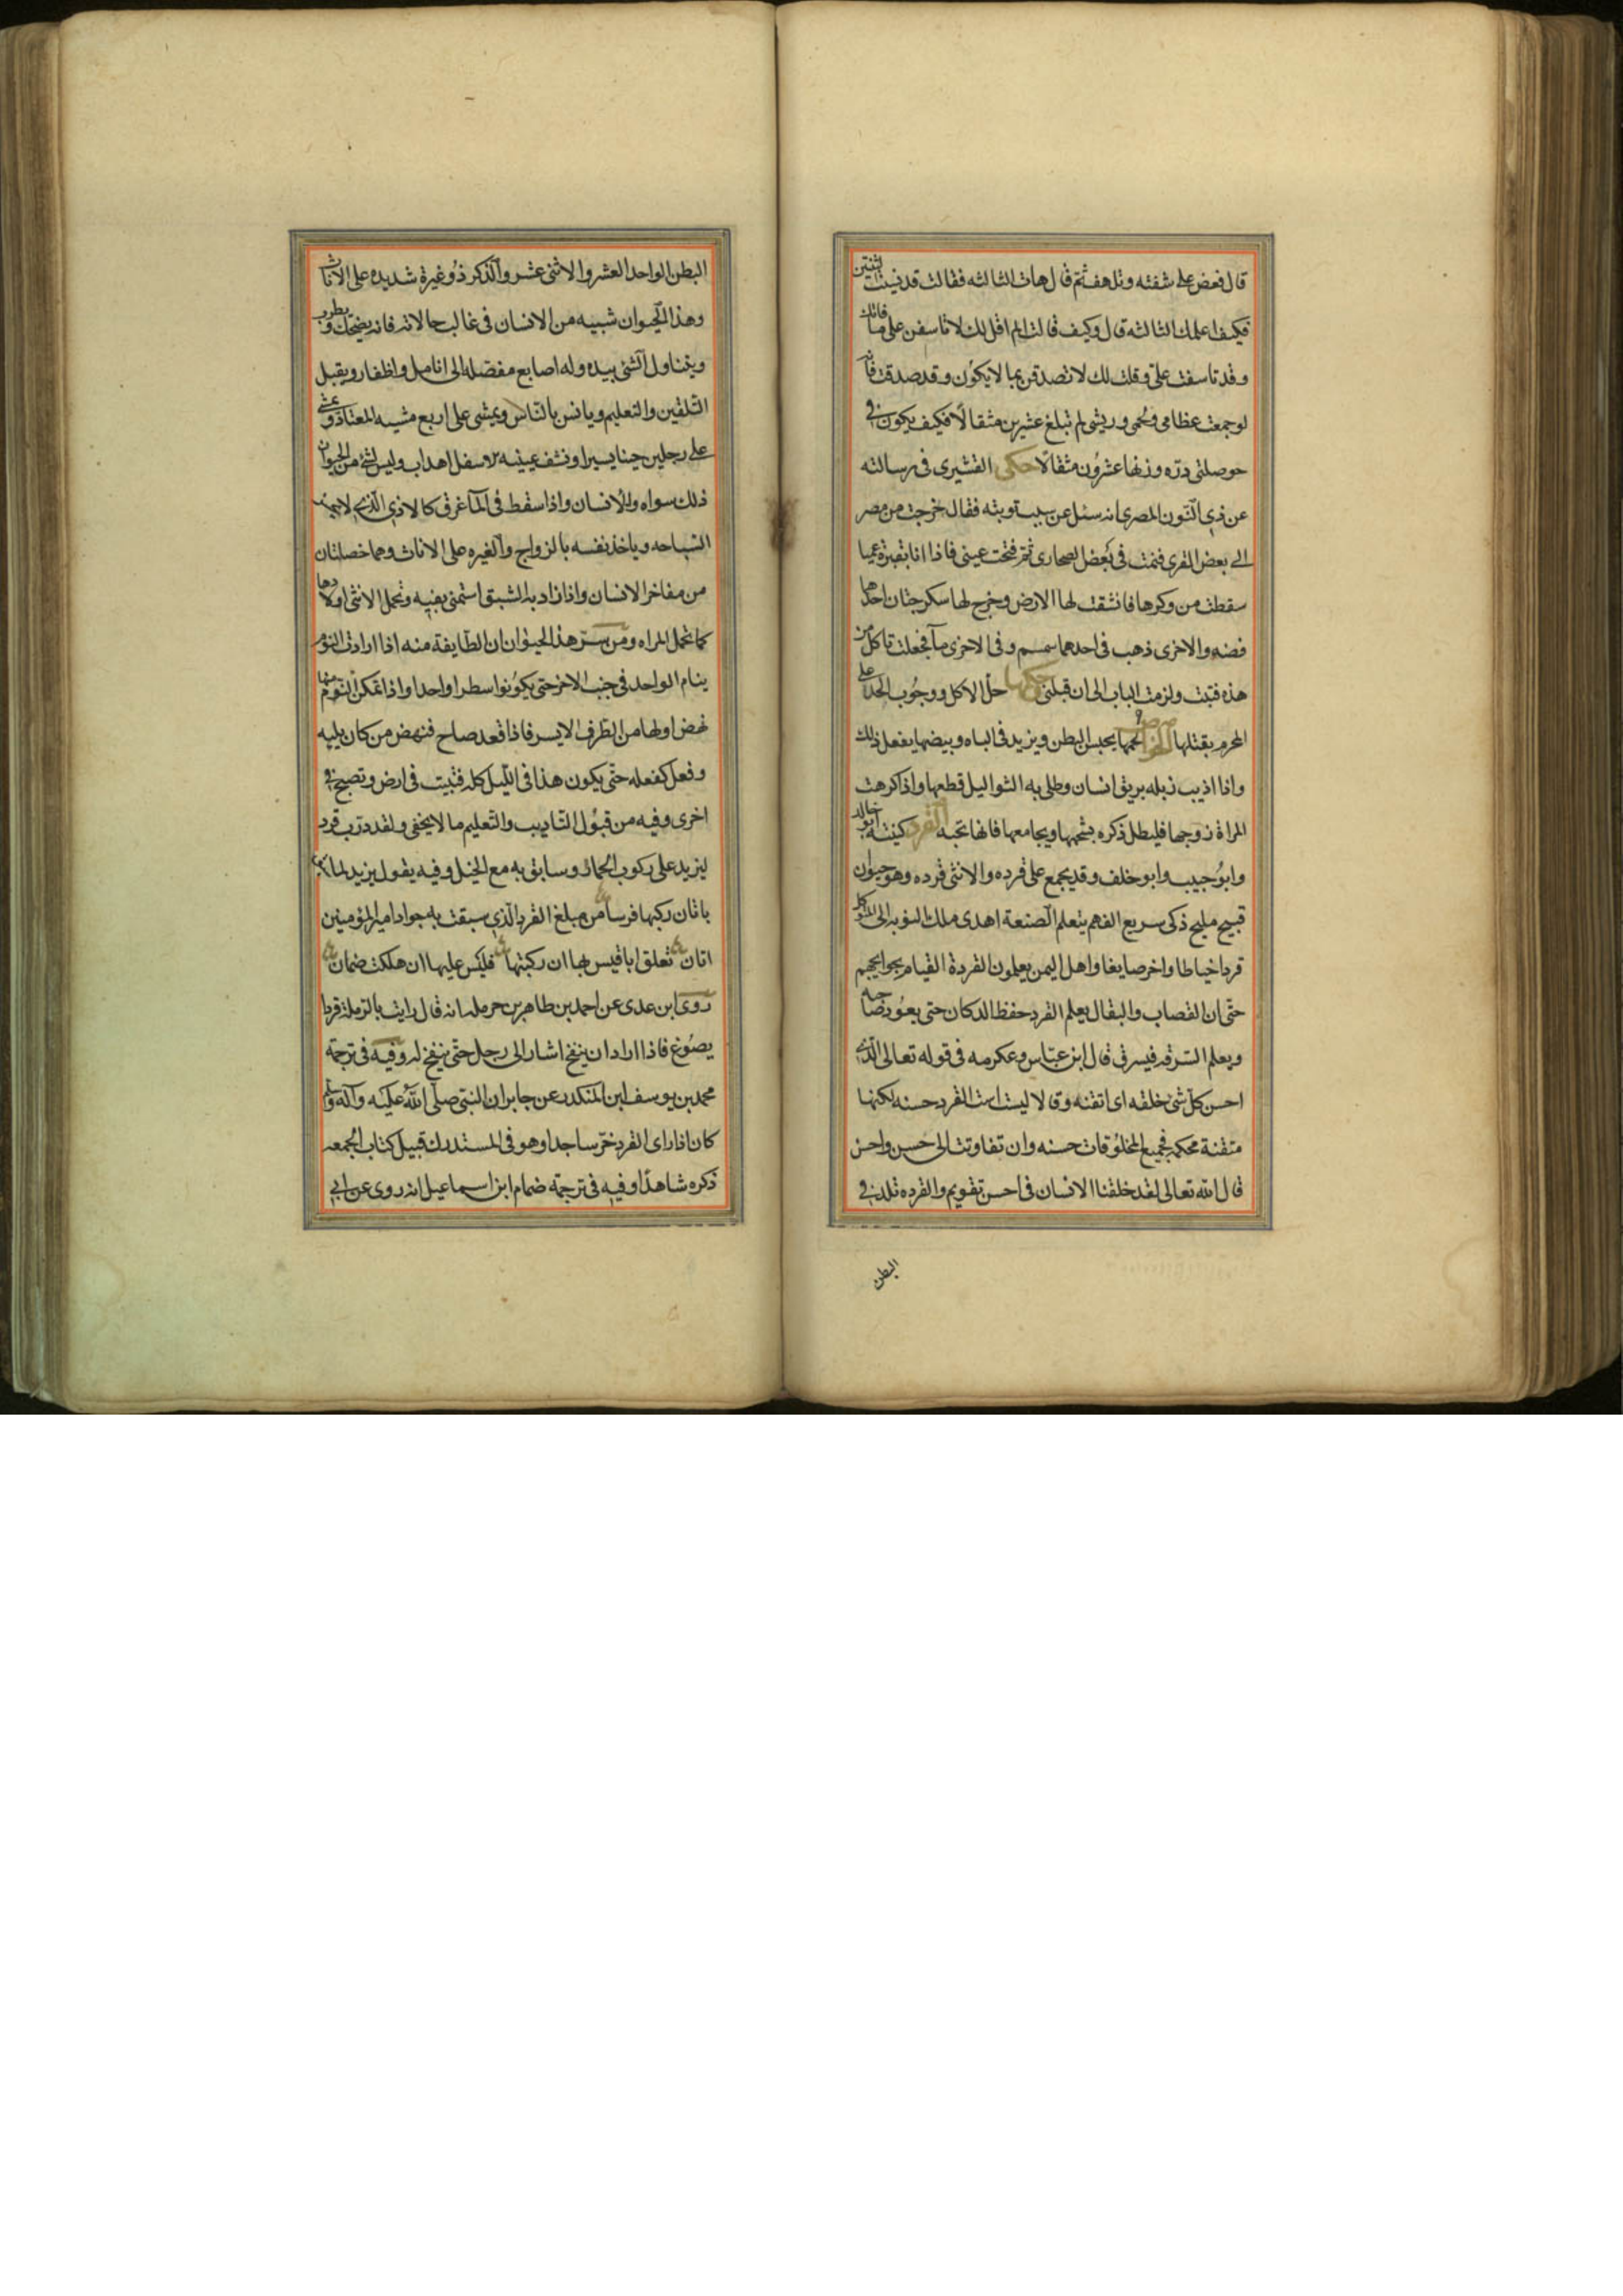 قال فعض على شفته وتلهف ثم قال هات الثالثه فقالت قد نسيت اثنتين
فكيف اعلمك الثالثه قال وكيف قالت الم اقل لك لا تاسفن على ما فاتك
وقد تاسفت علىّ وقلت لك لا تصدقن بما لا يكون وقد صدقت فانه
لو جمعت عظامى ولحمى وريشى لم تبلغ عشرين مثقالاً فكيف يكون فى
حوصلتى دره وزنها عشرون مثقالاً حكى القشيرى فى رسالته
عن ذى النون المصرى انه سئل عن سبب توبته فقال خرجت من مصر
الى بعض القرى فنمت فى بعض الصحارى ثم فتحت عينى فاذا انا بقبرة عميا
سقطت من وكرها فانشقت لها الارض وخرج لها سكرجتان احداهما
فضه والاخرى ذهب فى احدهما سمسم وفى الاخرى مآ فجعلت تاكل من
هذه فتبت ولزمت الباب الى ان قبلنى حكمها حلّ الاكل ووجوب الجزا على
المحرم بقتلها الخواص لحمها يحبس البطن ويزيد فى الباه وبيضها يفعل ذلك
واذا اذيب زبله بريق انسان وطلى به الثواليل قطعها واذا كرهت
المراة زوجها فليطل ذكره بشحمها ويجامعها فانها تحبه القرد كنيته ابو خالد
وابو حبيب وابو خلف وقد يجمع على قرده والانثى قرده وهو حيوان
قبيح مليح ذكى سريع الفهم يتعلم الصنعة اهدى ملك النوبه الى المتوكل
قردا خياطا واخر صايغا واهل اليمن يعلمون القردة القيام بحوايجهم
حتى ان القصاب والبقال يعلم القرد حفظ الدكان حتى يعود صاحبه
ويعلم السرقه فيسرق قال ابن عبّاس وعكرمه فى قوله تعالى الذى
احسن كل شى خلقه اى اتقنه وقالا ليست است القرد حسنه لكنها
متقنة محكمه فجميع المخلوقات حسنه وان تفاوتت الى حسن واحسن
قال الله تعالى لقد خلقنا الانسان فى احسن تقويم والقرده تلد فى
البطن
البطن الواحد العشر والاثنى عشر والذكر ذو غيرة شديده على الاناث
وهذا الحيوان شبيه من الانسان فى غالب حالاته فانه يضحك ويطرب
ويتناول الشئ بيده وله اصابع مفصله الى انامل واظفار ويقبل
التلقين والتعليم ويانس بالناس ويمشى على اربع مشيه المعتاد ويمشى
على رجلين حينا يسيرا وشف عينيه الاسفل اهداب وليس لشئ من الحيوان
ذلك سواه والانسان واذا سقط فى المآ غرق كالادمى الذى لا يحسن
السباحه وياخذ نفسه بالزواج والغيره على الاناث وهما خصلتان
من مفاخر الانسان واذا زاد به الشبق استمنى بفيه وتحمل الانثى اولادها
كما تحمل المراه ومن سرّ هذا الحيوان ان الطايفة منه اذا ارادت النوم
ينام الواحد فى جنب الاخر حتى يكونوا سطرا واحدا واذا تمكن النوم منها
نهض اولها من الطرف الايسر فاذا قعد صاح فنهض من كان يليه
وفعل كفعله حتى يكون هذا فى الليل كله فتبيت فى ارض وتصبح فى
اخرى وفيه من قبول التاديب والتعليم ما لا يخفى ولقد درب قرد
ليزيد على ركوب الحمار وسابق به مع الخيل وفيه يقول يزيد لما
باتان ركبها فرسا من مبلغ القرد الذى سبقت به جواد امير المؤمنين
اتان تعلق ابا قيس بها ان ركبتها فليس عليها ان هلكت ضمان
روى ابن عدى عن احمد بن طاهر بن حرمله انه قال رايت بالرملة قردا
يصوغ فاذا اراد ان ينفخ اشار الى رجل حتى ينفخ له وفيه فى ترجمة
محمد بن يوسف ابن المنكدر عن جابر ان النبى صلى الله عليه وآله وسلم
كان اذا راى القرد خرّ ساجدا وهو فى المستدرك قبيل كتاب الجمعه
ذكره شاهدًا وفيه فى ترجمة ضمام ابن اسماعيل انه روى عن ابى